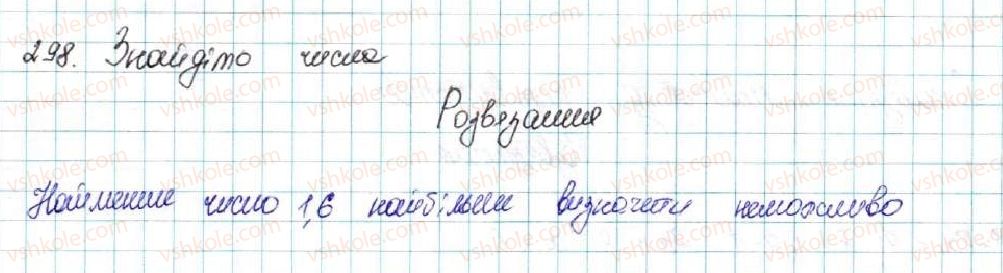 298. Знайдіто числа
Розвязання
Найменше число 1,6 найбільше визначити неможливо